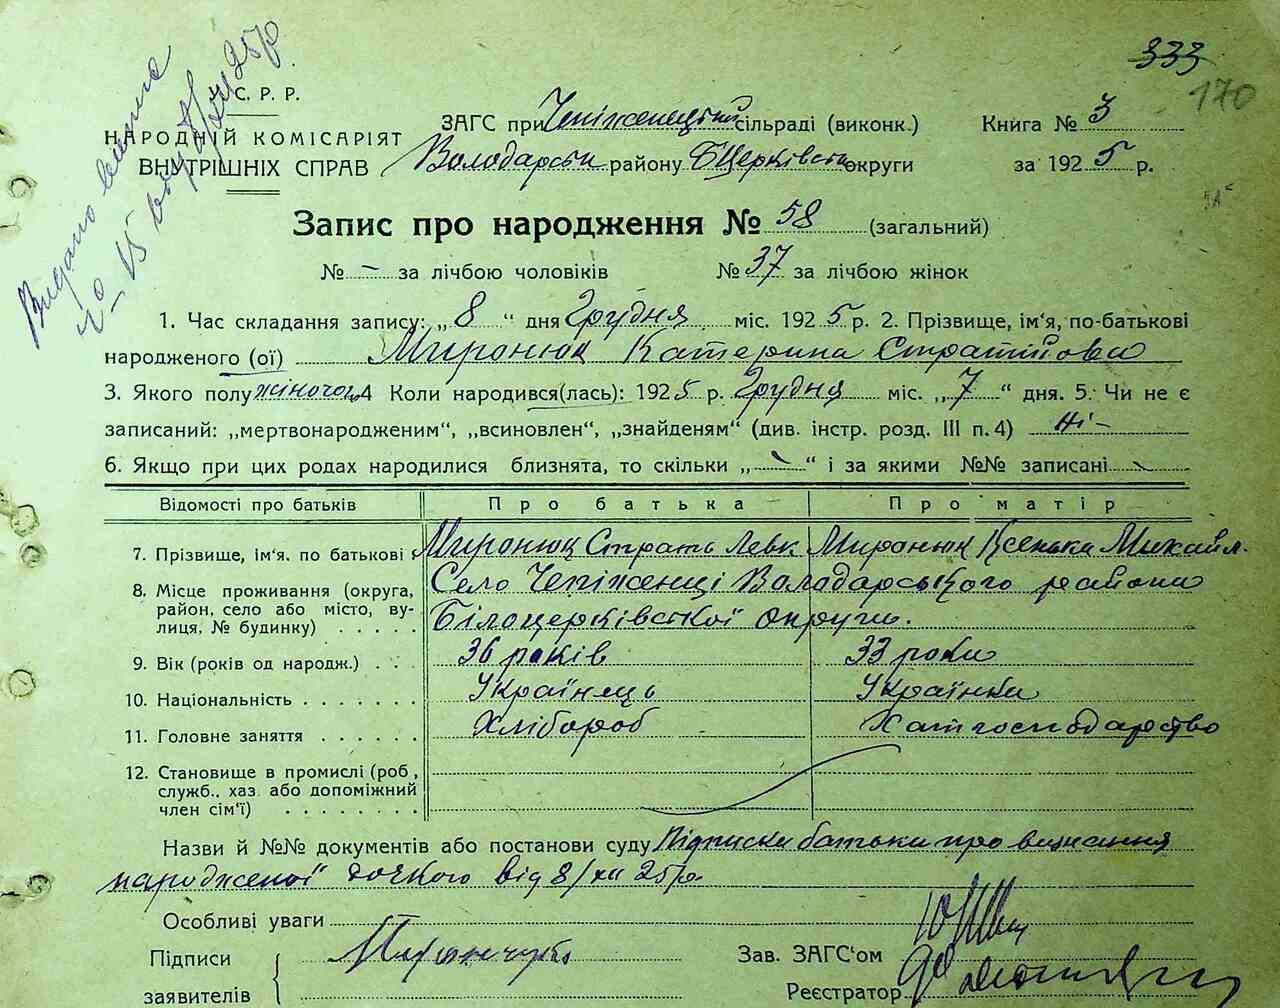 333
170
Видано
У. С. Р. Р.
НАРОДНІЙ КОМІСАРІЯТ
ВНУТРІШНІХ СПРАВ
ЗАГС при Чепіженецькій сільраді (виконк.) Книга № 3
Володарськ району БЦерківськ округи за 1925 р.
Запис про народження № 58 (загальний)
№ – за лічбою чоловіків № 37 за лічбою жінок
1. Час складання запису: „8“ дня Грудня міс. 1925 р. 2. Прізвище, ім'я, по-батькові
народженого (ої) Миронюк Катерина Стратійова
3. Якого полу жіночого 4 Коли народився(лась): 1925 р. Грудня міс. „7“ дня. 5. Чи не є
записаний: „мертвонародженим“, „всиновлен“, „знайденям“ (див. інстр. розд. III п. 4) Ні –
6. Якщо при цих родах народилися близнята, то скільки „ “ і за якими №№ записані
Відомості про батьків Про батька Про матір
7. Прізвище, ім'я. по батькові Миронюк Страть Левк Миронюк Ксенька Михайл.
8. Місце проживання (округа, район, село або місто, вулиця, № будинку) Село Чепіженці Володарського району
Білоцерківської округи.
9. Вік (років од народж.) 36 років 33 роки
10. Національність Українець Українка
11. Головне заняття Хлібороб Хатгосподарство
12. Становище в промислі (роб,
служб., хаз. або допоміжний
член сім'ї)
Назви й №№ документів або постанови суду Підписки батька про визнання
народженої дочкою від 8/XII 25р.
Особливі уваги
Підписи Зав. ЗАГС'ом
заявителів Реєстратор